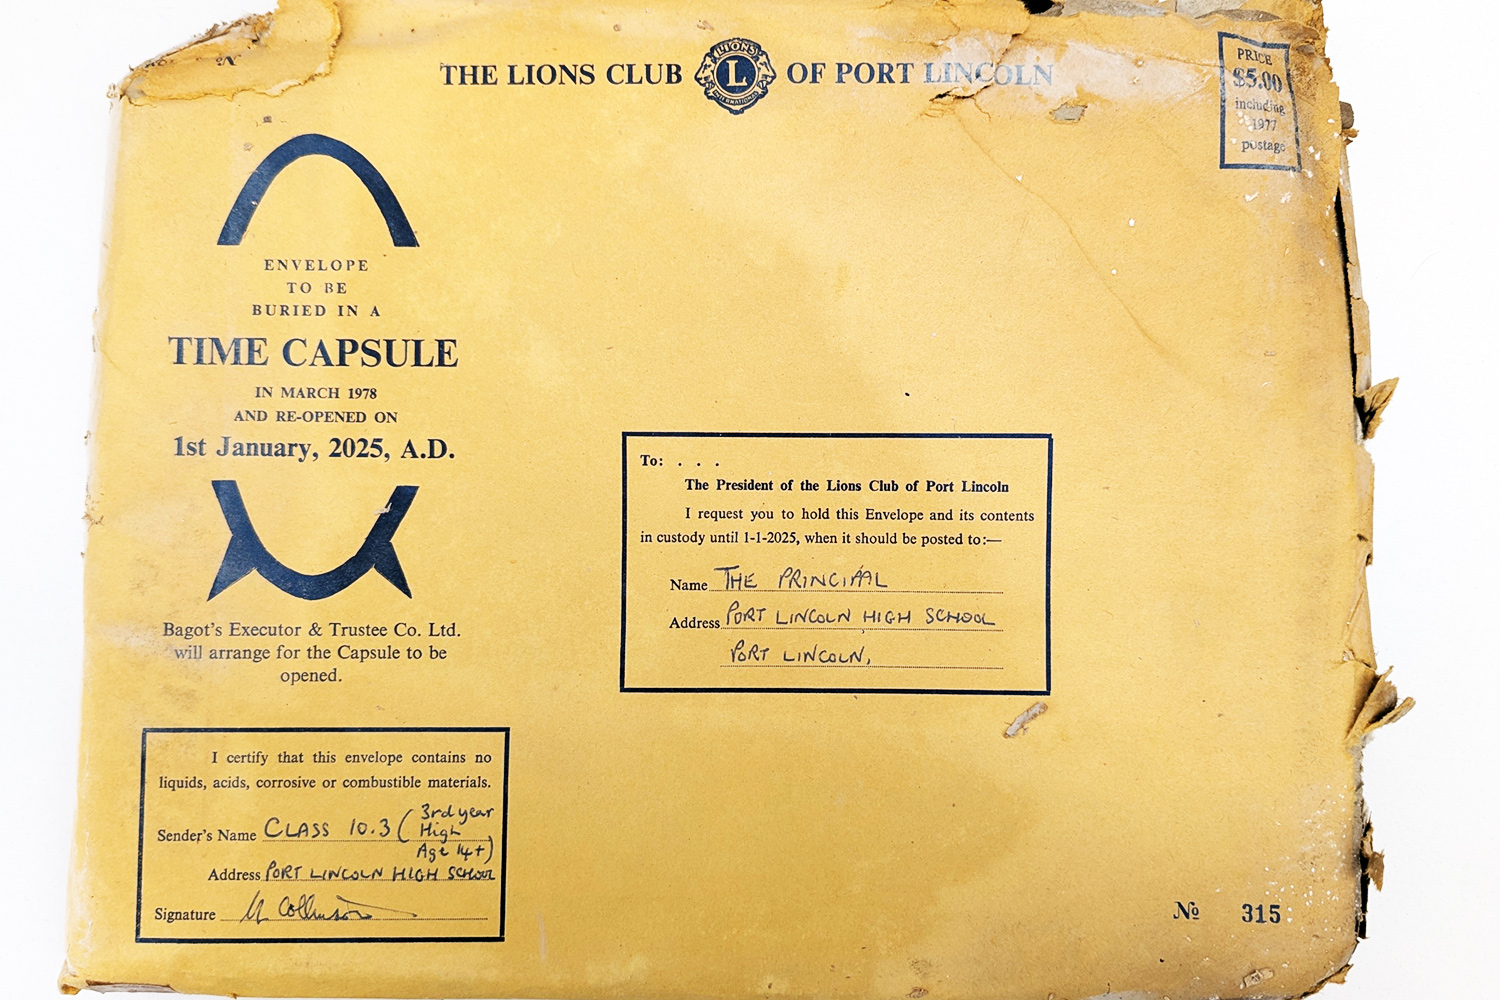 THE LIONS CLUB OF PORT LINCOLN
LIONS
L
INTERNATIONAL
PRICE
$5.00
including
1977
postage
ENVELOPE
TO BE
BURIED IN A
TIME CAPSULE
IN MARCH 1978
AND RE-OPENED ON
1st January, 2025, A.D.
Bagot's Executor & Trustee Co. Ltd.
will arrange for the Capsule to be
opened.
To: . . .
The President of the Lions Club of Port Lincoln
I request you to hold this Envelope and its contents
in custody until 1-1-2025, when it should be posted to:—
Name THE PRINCIPAL
Address PORT LINCOLN HIGH SCHOOL
PORT LINCOLN,
I certify that this envelope contains no
liquids, acids, corrosive or combustible materials.
Sender's Name CLASS 10.3 (3rd year
High
Age 14+)
Address PORT LINCOLN HIGH SCHOOL
Signature
No 315